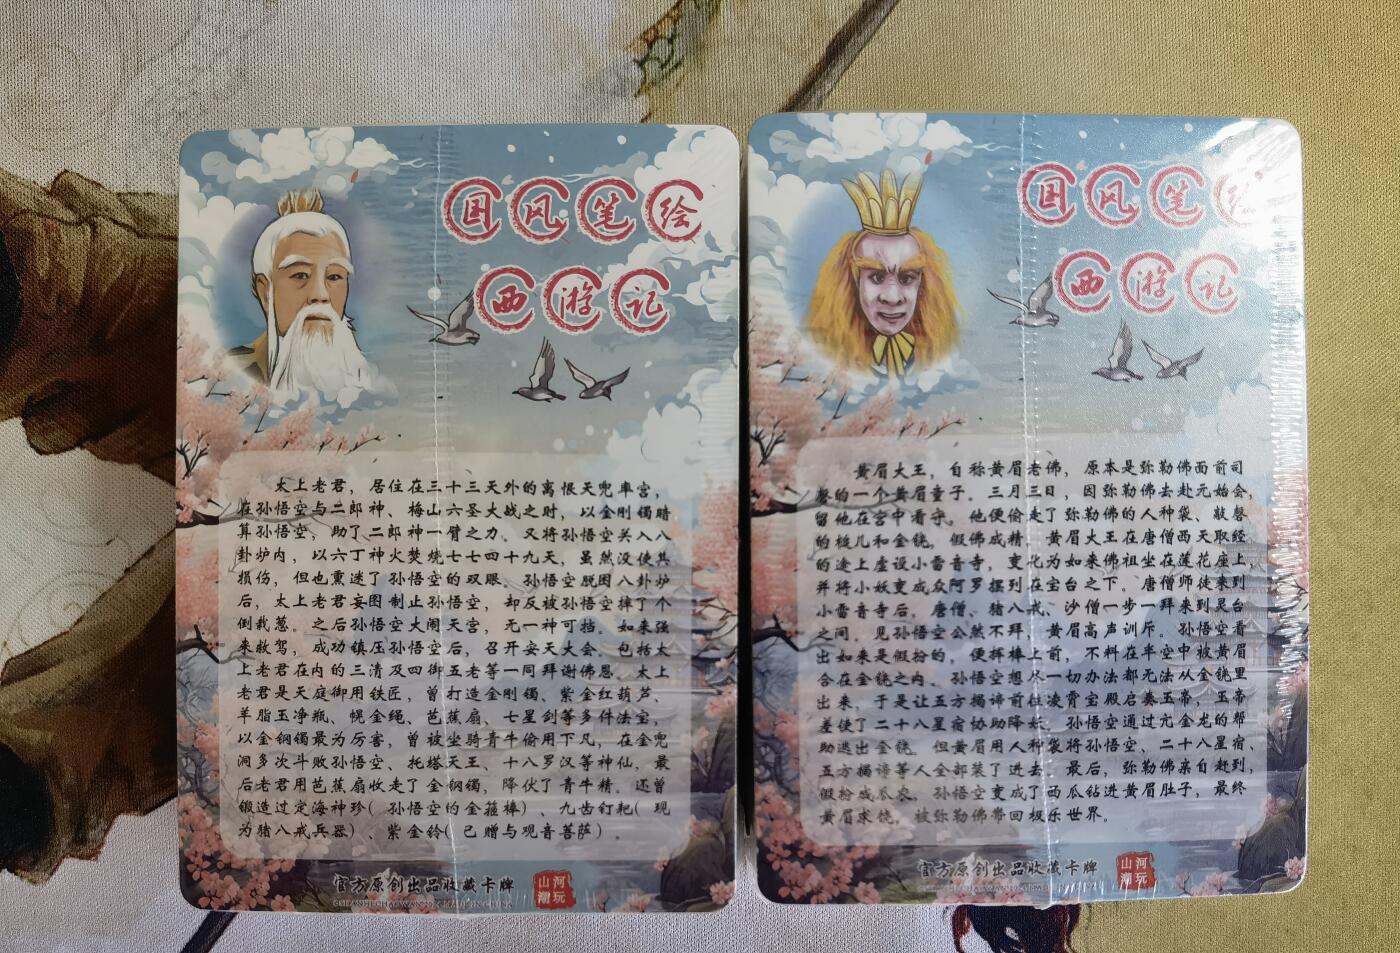 国风笔绘
西游记
太上老君，居住在三十三天外的离恨天兜率宫，
在孙悟空与二郎神、梅山六圣大战之时，以金刚镯暗
算孙悟空，助了二郎神一臂之力。又将孙悟空关入八
卦炉内，以六丁神火焚烧七七四十九天，虽然没使其
损伤，但也熏迷了孙悟空的双眼。孙悟空脱困八卦炉
后，太上老君妄图制止孙悟空，却反被孙悟空摔了个
倒栽葱。之后孙悟空大闹天宫，无一神可挡。如来强
来救驾，成功镇压孙悟空后，召开安天大会。包括太
上老君在内的三清及四御五老等一同拜谢佛恩。太上
老君是天庭御用铁匠，曾打造金刚镯、紫金红葫芦、
羊脂玉净瓶、幌金绳、芭蕉扇、七星剑等多件法宝，
以金钢镯最为厉害，曾被坐骑青牛偷用下凡，在金兜
洞多次斗败孙悟空、托塔天王、十八罗汉等神仙，最
后老君用芭蕉扇收走了金钢镯，降伏了青牛精。还曾
锻造过定海神珍（孙悟空的金箍棒）、九齿钉耙（现
为猪八戒兵器）、紫金铃（已赠与观音菩萨）。
官方原创出品收藏卡牌
山河
潮玩
国风笔绘
西游记
黄眉大王，自称黄眉老佛，原本是弥勒佛面前司
磬的一个黄眉童子。三月三日，因弥勒佛去赴元始会，
留他在宫中看守。他便偷走了弥勒佛的人种袋、敲磬
的槌儿和金铙，假佛成精。黄眉大王在唐僧西天取经
的途上虚设小雷音寺，变化为如来佛祖坐在莲花座上，
并将小妖变成众阿罗摆列在宝台之下。唐僧师徒来到
小雷音寺后，唐僧、猪八戒、沙僧一步一拜来到灵台
之间。见孙悟空公然不拜，黄眉高声训斥。孙悟空看
出如来是假扮的，便挥棒上前，不料在半空中被黄眉
合在金铙之内。孙悟空想尽一切办法都无法从金铙里
出来，于是让五方揭谛前往凌霄宝殿启奏玉帝，玉帝
差使了二十八星宿协助降妖。孙悟空通过亢金龙的帮
助逃出金铙。但黄眉用人种袋将孙悟空、二十八星宿、
五方揭谛等人全部装了进去。最后，弥勒佛亲自赶到，
假扮成瓜农，孙悟空变成了西瓜钻进黄眉肚子，最终
黄眉求饶，被弥勒佛带回极乐世界。
官方原创出品收藏卡牌
山河
潮玩